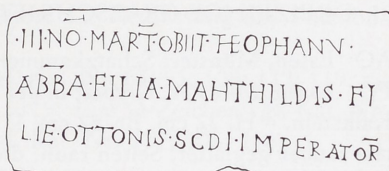 ·III·NŌ·MART̄·OBIIT·TEOPHANV·
ABB̄A·FILIA·MAHTHILDIS·FI
LIE·OTTONIS·SCDI·IMPERATOR̄